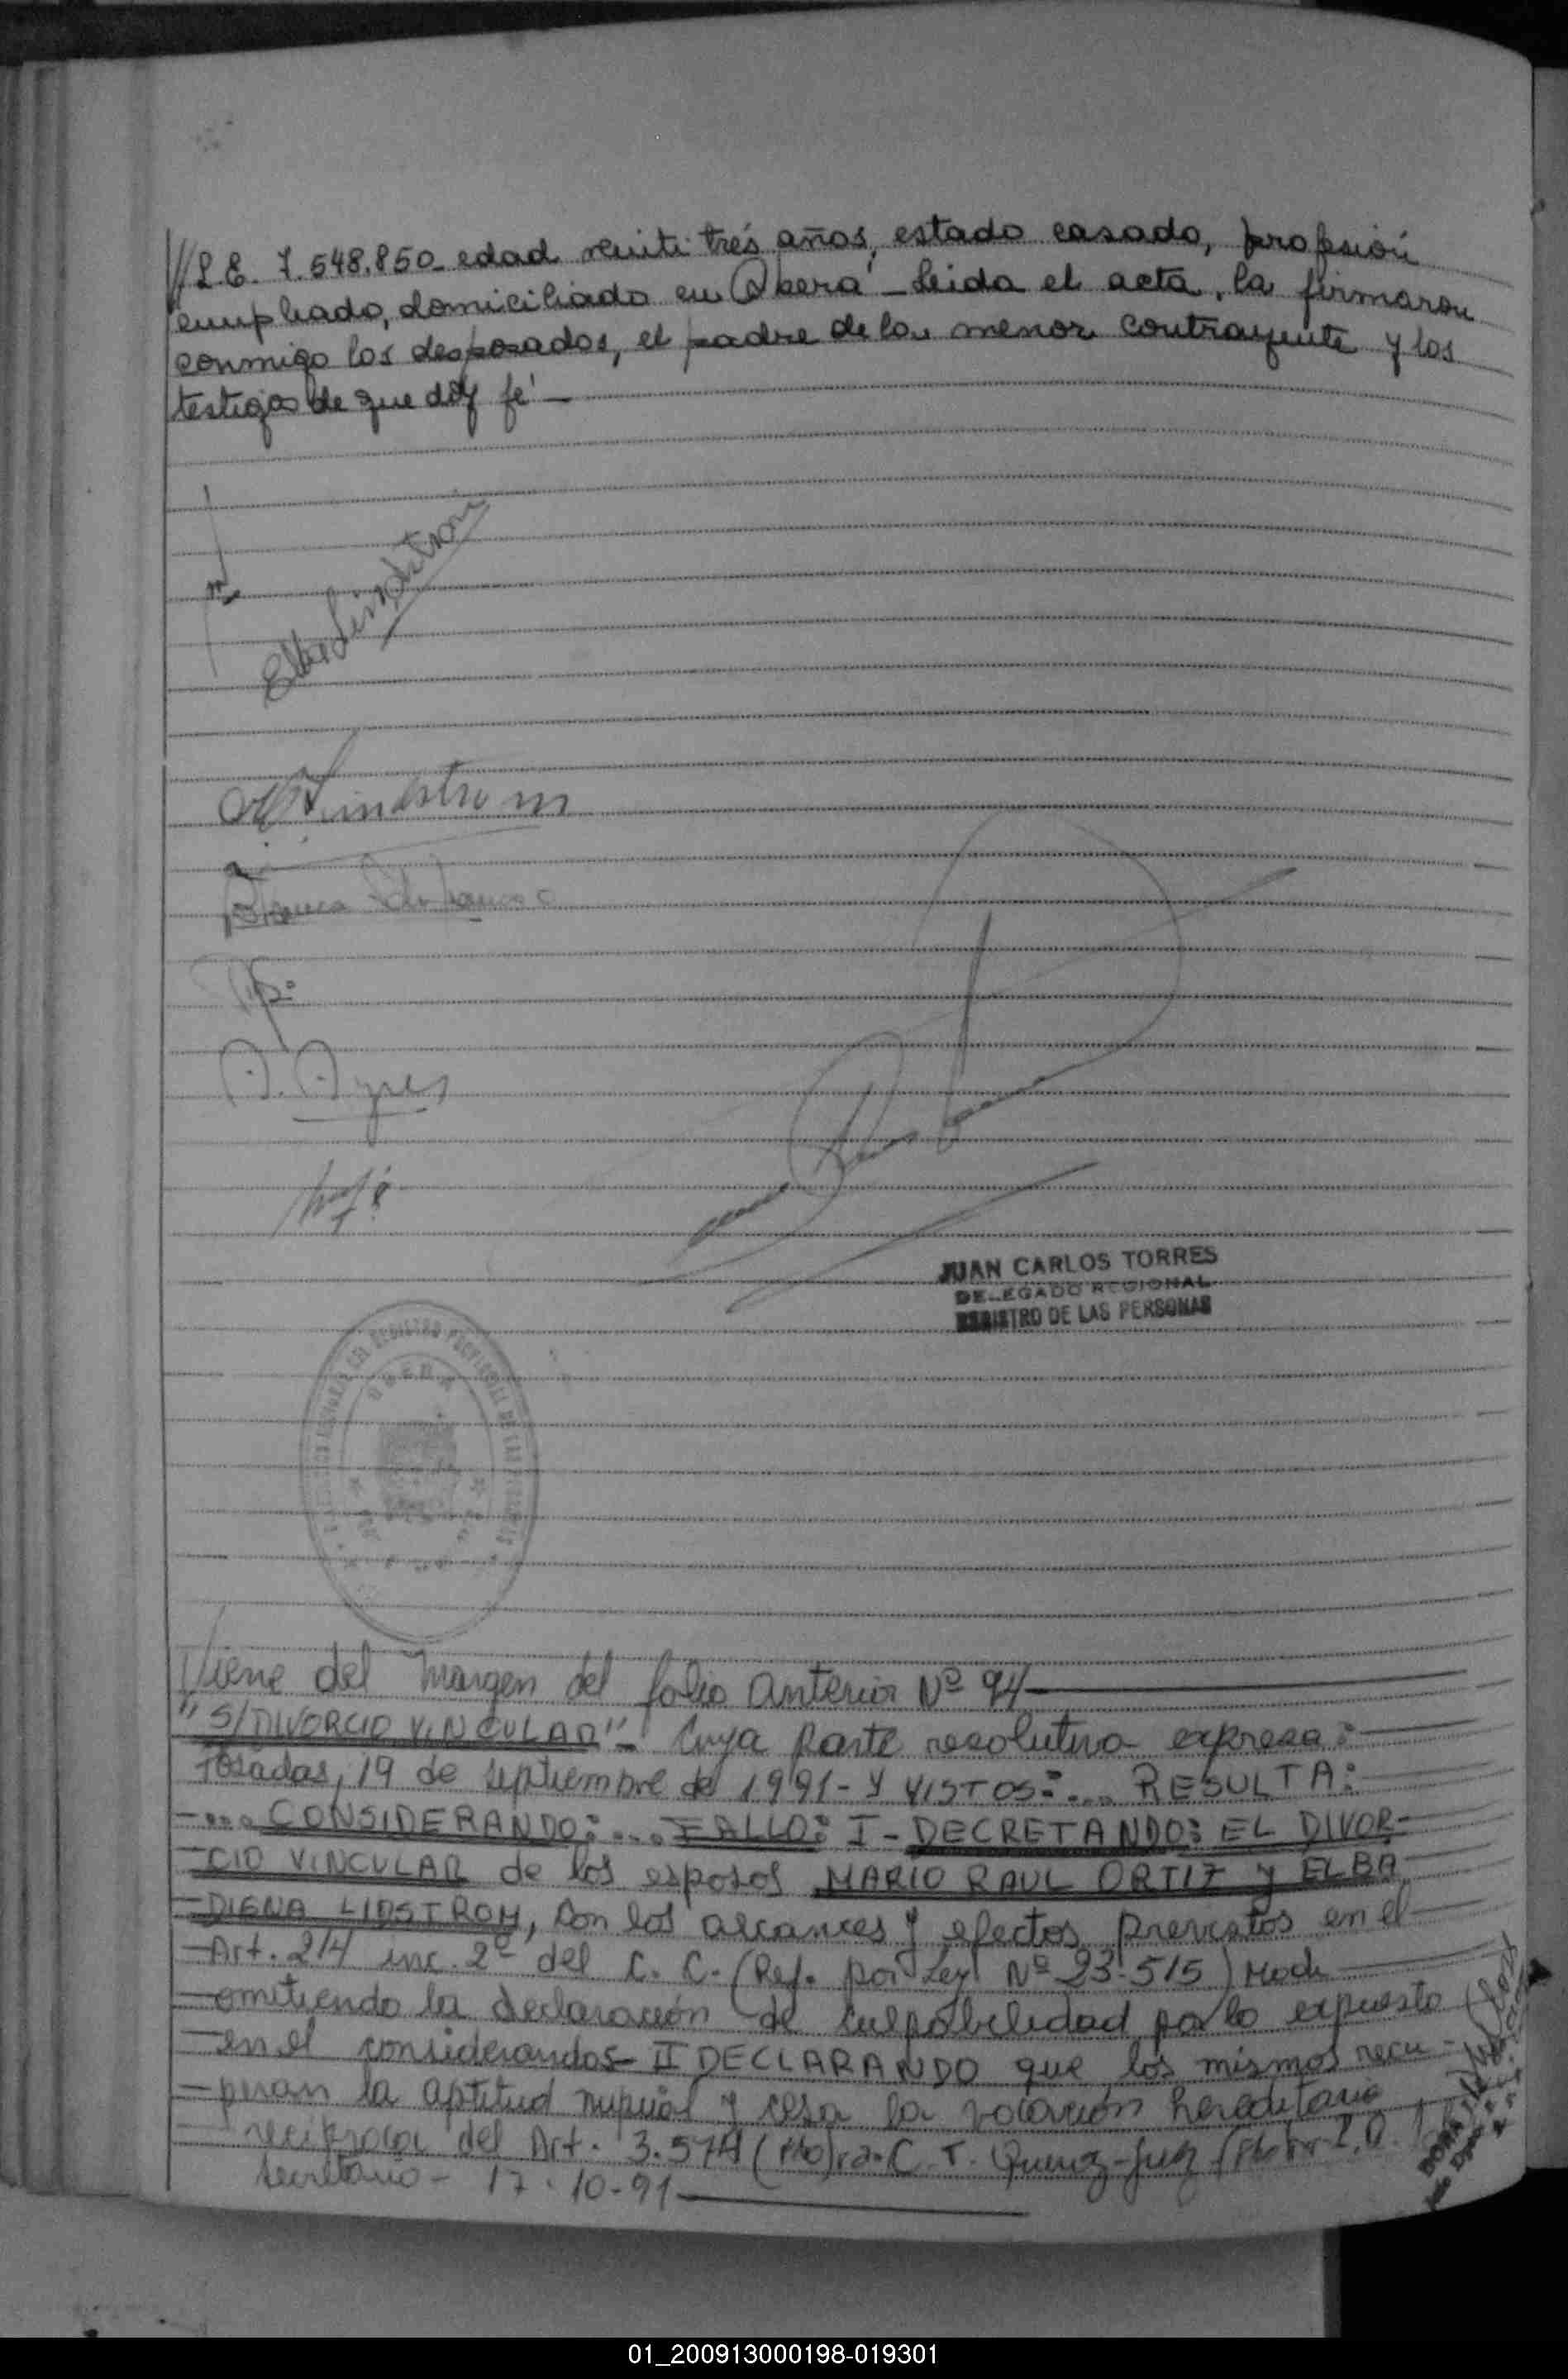 //L.E. 7.548.850_ edad veinti trés años, estado casado, profesión
empleado, domiciliado en Oberá _ Leida el acta, la firmaron
conmigo los desposados, el padre de la menor contrayente y los
testigos de que doy fé _
Elba Lindstrom
Lindstrom
A. Ayres
JUAN CARLOS TORRES
DELEGADO REGIONAL
REGISTRO DE LAS PERSONAS
OBERA
Viene del Margen del folio anterior Nº 94
"S/DIVORCIO VINCULAR"- Cuya parte resolutiva expresa:
Posadas, 19 de septiembre de 1991- Y VISTOS:... RESULTA:
... CONSIDERANDO:... FALLO: I - DECRETANDO: EL DIVOR-
CIO VINCULAR de los esposos MARIO RAUL ORTIZ y ELBA
DIGNA LIDSTROM, con los alcances y efectos previstos en el
Art. 214 inc. 2º del C. C. (Ref. por Ley Nº 23.515)
omitiendo la declaración de culpabilidad por lo expuesto
en el considerandos- II DECLARANDO que los mismos recu-
peran la aptitud nupcial y cesa la vocación hereditaria
reciproca del Art. 3.574 (Fdo) C. T.
Secretario - 17-10-91
01_200913000198-019301